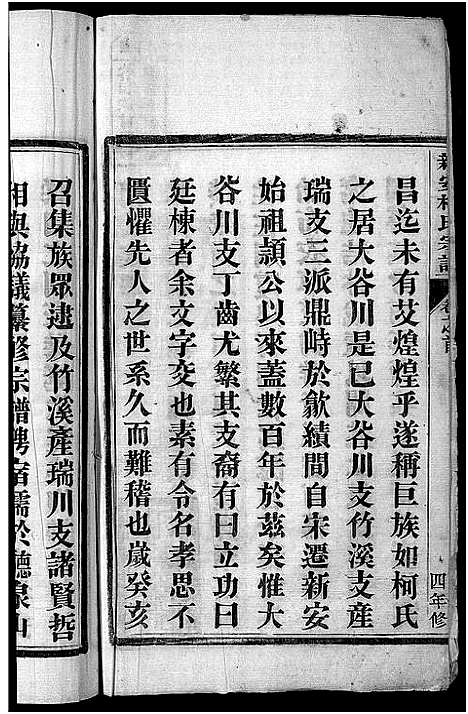 新安柯氏宗譜
卷之首
四年修
昌迄未有艾煌煌乎遂稱巨族如柯氏
之居大谷川是已大谷川支竹溪支產
瑞支三派鼎峙於歙績間自宋遷新安
始祖頴公以來蓋數百年於茲矣惟大
谷川支丁齒尤繁其支裔有曰立功曰
廷棟者余文字交也素有令名孝思不
匱懼先人之世系久而難稽也歲癸亥
召集族眾逮及竹溪產瑞川支諸賢哲
相與協議纂修宗譜聘宿儒於德泉山